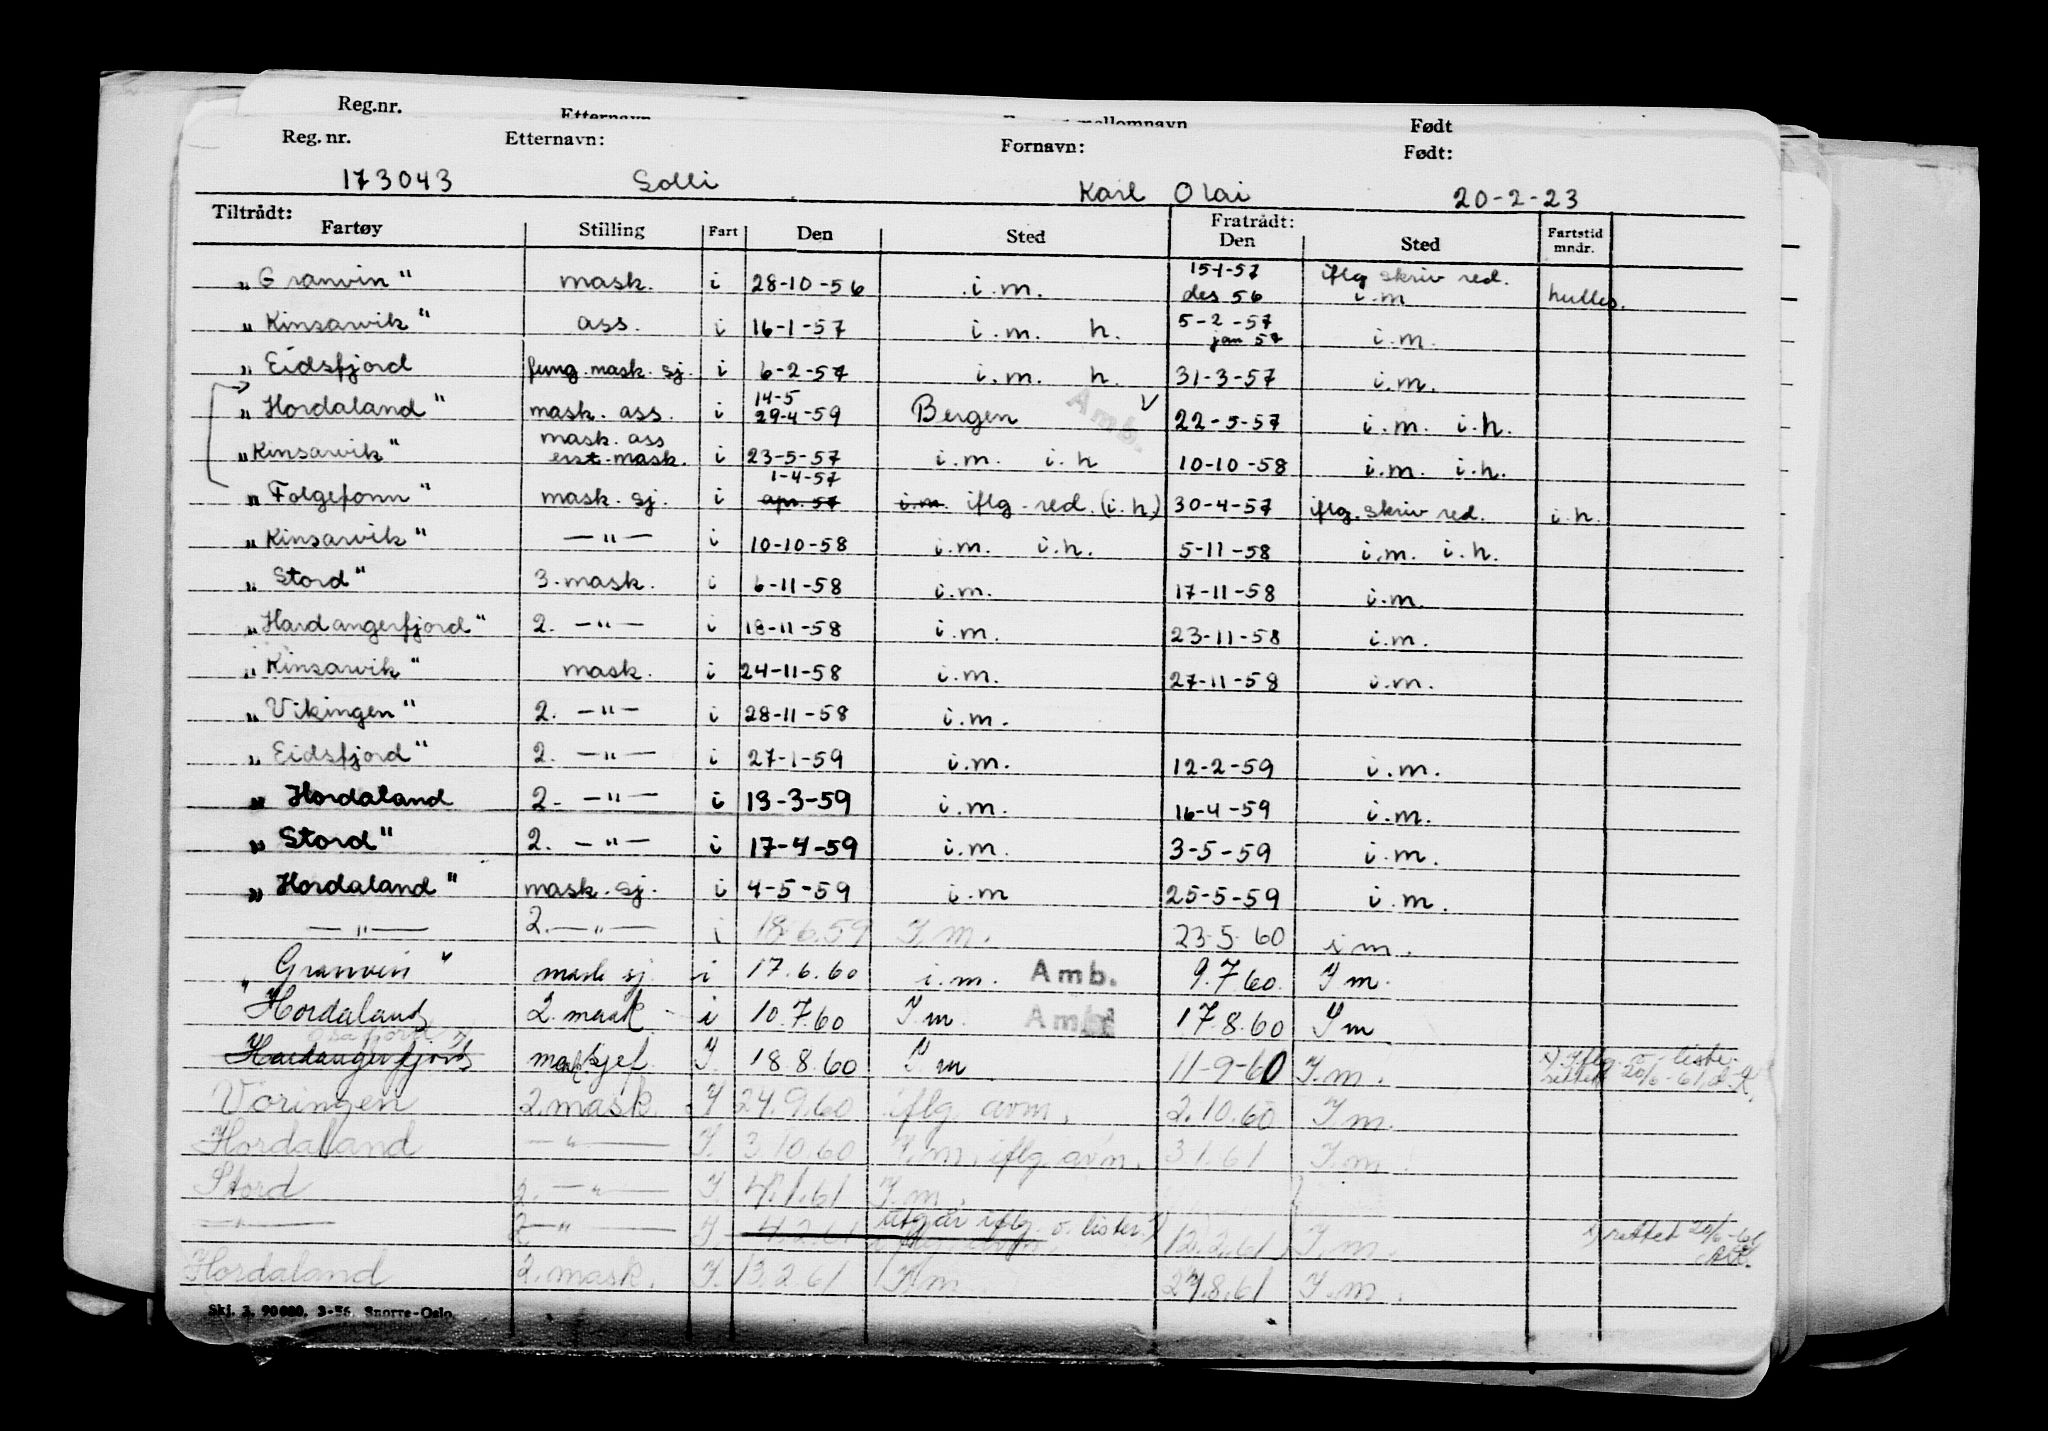 Reg.nr. Etternavn mellomnavn Født
Reg. nr. Etternavn: Fornavn: Født:
173043 Solli Karl Olai 20-2-23
Tiltrådt: Fratrådt:
Fartøy Stilling Fart Den Sted Den Sted Fartstid mndr.
"Granvin" mask. i 28-10-56 i.m. 15-1-57 des 56 iflg skriv red. i.m hulles.
"Kinsarvik" ass. i 16-1-57 i.m. h. 5-2-57 jan 57 i.m.
"Eidsfjord fung. mask. sj. i 6-2-57 i.m. h. 31-3-57 i.m.
"Hordaland" mask. ass. i 14-5 29-4-59 Bergen Amb. 22-5-57 i.m. i.h.
"Kinsarvik" mask. ass eist. mask. i 23-5-57 i.m. i.h 10-10-58 i.m. i.h.
"Folgefonn" mask. sj. i 1-4-57 apr. 57 i.m. iflg. red. (i.h.) 30-4-57 iflg. skriv red. i.h.
"Kinsarvik" —"— i 10-10-58 i.m. i.h. 5-11-58 i.m. i.h.
"Stord" 3. mask. i 6-11-58 i.m. 17-11-58 i.m.
"Hardangerfjord" 2. —"— i 18-11-58 i.m. 23-11-58 i.m.
"Kinsarvik" mask. i 24-11-58 i.m. 27-11-58 i.m.
"Vikingen" 2. —"— i 28-11-58 i.m.
"Eidsfjord" 2. —"— i 27-1-59 i.m. 12-2-59 i.m.
"Hordaland 2. —"— i 13-3-59 i.m. 16-4-59 i.m.
"Stord" 2. —"— i 17-4-59 i.m. 3-5-59 i.m.
"Hordaland" mask. sj. i 4-5-59 i.m 25-5-59 i.m.
—"— 2. —"— i 18.6.59 I.m. 23.5.60 i m.
"Granvin" mask sj. i 17.6.60 i.m. Amb. 9.7.60. I m.
Hordaland 2. mask i 10.7.60 I m. Amb 17.8.60 I m
Hardangerfjord masksjef. I. 18.8.60 I m 11-9-60 I.m. iflg. liste. rettet 20/6-61
Vøringen 2. mask. I 24.9.60 iflg. avm. 2.10.60 I.m.
Hordaland —"— I. 3.10.60 I.m. iflg. avm. 3.1.61 I.m.
Stord 2. —"— I. 4.1.61 I.m.
—"— 2 —"— I. 4.2.61 utgår iflg. o. lister. 12.2.61 I.m. rettet 20/6-61
Hordaland 2. mask. I. 13.2.61 I m. 27.8.61 I.m.
Skj. 3. 90000. 3-56. Snorre-Oslo.